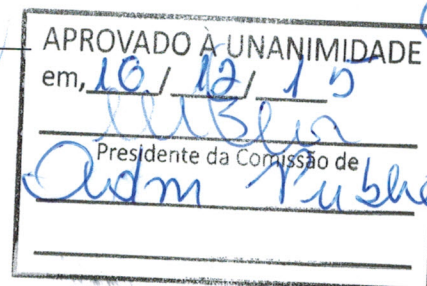 APROVADO À UNANIMIDADE
em, 10 / 12 / 15
Presidente da Comissão de
Adm